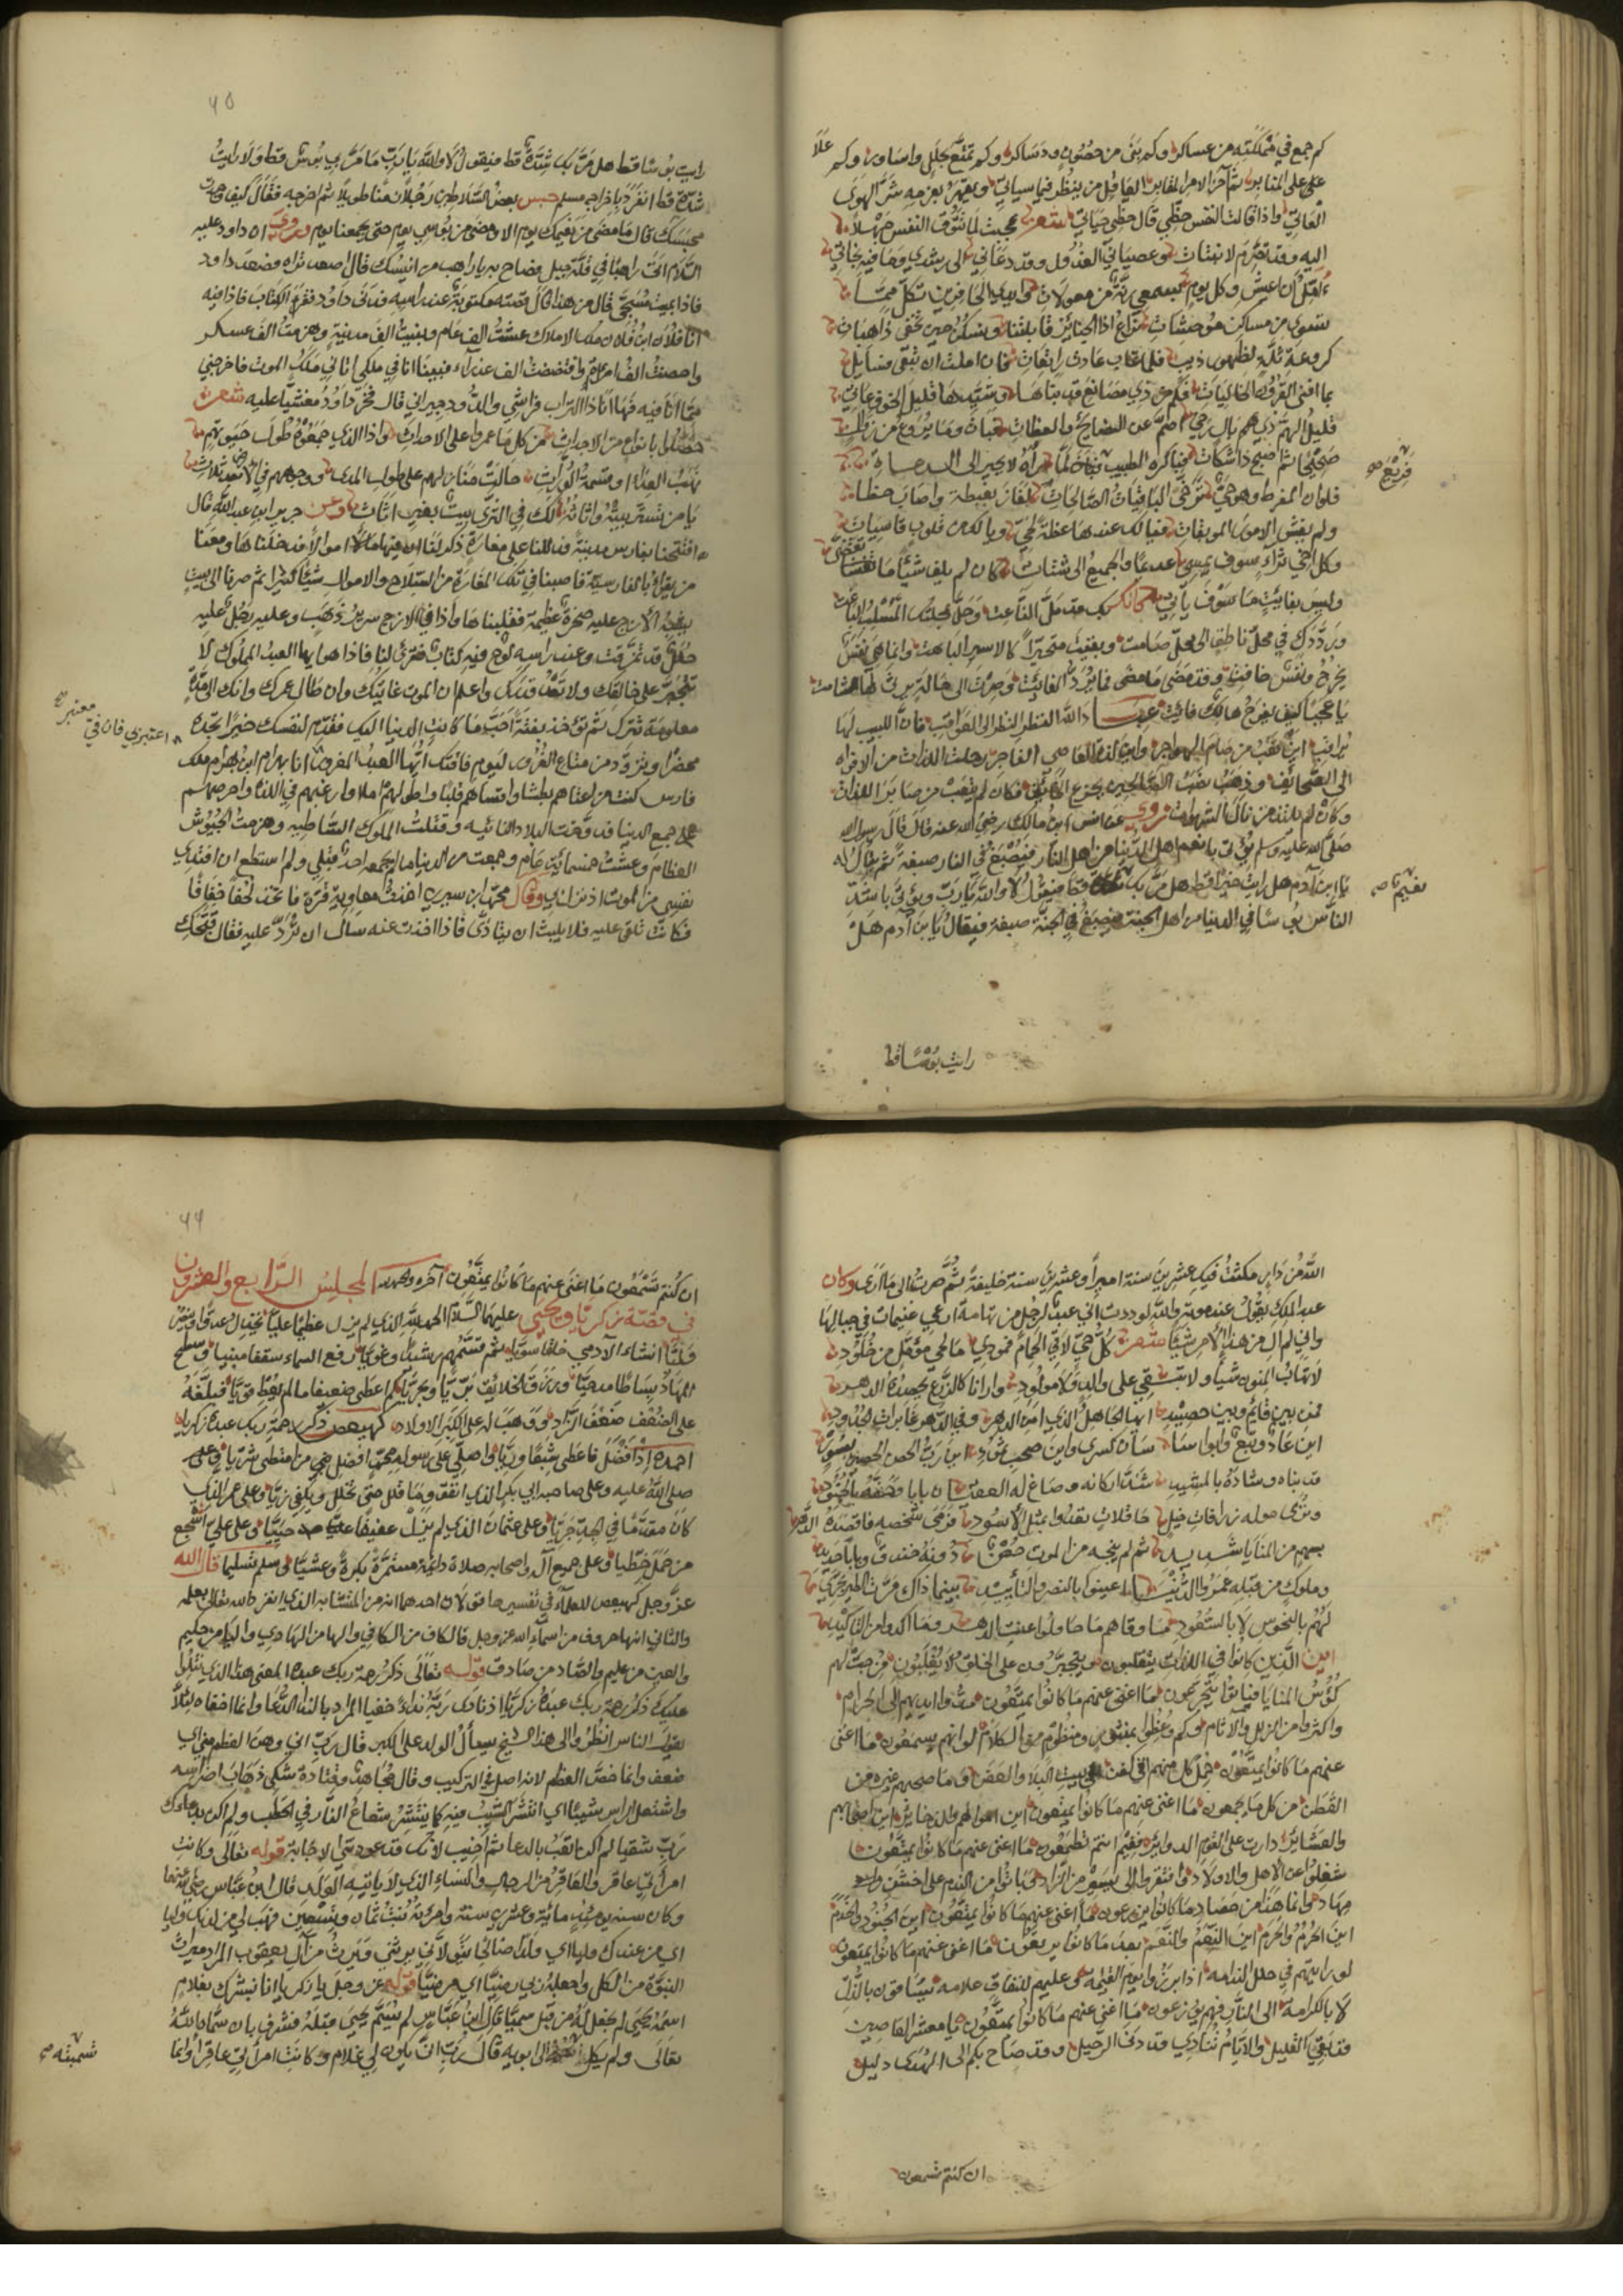 كم جمع في مملكته من عساكر وكم بنى من حصون ودساكر وكم تمتع بحلل واساور وكم علا
على المنابر ثم آخر الامر المقابر العاقل من ينظر فيما سياتي ويقهر بعزمه شر الهوى
العاتي واذا قالت النفس حظي قال حظي حياتي شعر عجبت لما تتوق النفس جهلا
اليه وقد تصرم لانبتات وعصياني العذول وقد دعاني الى رشدي وما فيه نجاتي
يؤمل ان اعيش وكل يوم بسمعي رنة من معولات وايدي الحافرين تكل مما
تسوى من مساكن موحشات نراع اذا الجنائز قابلتنا ونسكن حين تخفى ذاهبات
كروعة ثلة لظهور ذيب فلما غاب عادت راتعات فان املت ان تبقى فسايل
بما افنى القرون الخاليات فكم من ذي مصانع قد بناها وشيدها قليل الخوف عاتي
قليل الهم ذي بال رخي اصم عن النصايح والعظات فبات وما يروع من زوال
صحيحا ثم اصبح ذا شكات فباكره الطبيب فحين لما رآه لا يحير الى الدعاة
فلو ان المفرط وهو حي توخى الباقيات الصالحات لفاز بغبطة واصاب حظا
ولم يغش الامور الموبقات فيا لك عندها عظة لحي ويا لك من قلوب قاسيات
وكل اخي ثراء سوف يمسي عديما والجميع الى شتات كان لم يلف شيئا ما تقضى
وليس بفايت ما سوف ياتي كانك بك قد مل الناعت وحل بحبلك المشلي الباغت
وردك في محل ناطق الى محل صامت وبقيت متحيرا كالاسير الباهت وانما هي نفس
يخرج ونفس خافت وقد مضى ما مضى فما يرد الفائت وصرت الى حالة يرثي لها الشامت
يا عجبا كيف يفرح هالك فائت عباد الله النظر النظر الى العواقب فان اللبيب لها
يراقب اين تعب من صام الهواجر واين لذة العاصي الفاجر رحلت اللذات من الافواه
الى الصحائف وذهب نصب الصالحين بجزع الخائف فكان لم يتعب من صابر اللذات
وكان لم يلتذ من نال الشهوات وروي عن انس ابن مالك رضي الله عنه قال قال رسول الله
صلى الله عليه وسلم يؤتى بانعم اهل الدنيا من اهل النار فيصبغ في النار صبغة ثم يقال له
يا ابن آدم هل رايت خيرا قط هل مر بك قط فيقول لا والله يارب ويؤتى باشد
الناس بؤسا في الدنيا من اهل الجنة فيصبغ في الجنة صبغة فيقال يا ابن آدم هل
نعيم صح
رايت بؤسا قط
٦٥
رايت بؤسا قط هل مر بك شدة قط فيقول لا والله يا رب ما مر بي بؤس قط ولا رايت
شدة قط انفرد باخراجه مسلم حبس بعض السلاطين رجلا زمنا طويلا ثم اخرجه فقال كيف وجدت
محبسك قال ما مضى من نعيمك يوم الا ومضى من بؤسي يوم حتى يجمعنا يوم وروي ان داود عليه
السلام اتى راهبا في قلة جبل فصاح به يا راهب من انيسك قال اصعد تراه فصعد داود
فاذا بميت مسجى قال من هذا قال قصته مكتوبة عند راسه فدنى داود فقرا الكتاب فاذا فيه
انا فلان ابن فلان ملك الاملاك عشت الف عام وبنيت الف مدينة وهزمت الف عسكر
واحصنت الف امراة وافتضضت الف عذراء فبينا انا في ملكي اتاني ملك الموت فاخرجني
مما انا فيه فها انا ذا التراب فراشي والدود جيراني قال فخر داود مغشيا عليه شعر
حصلوا بانواع من الاحداث من كل ما عمروا على الاحداث واذا الذي جمعوه طول حيوتهم
نهب العدا او قسمة الوراث حالت منازلهم على طول المدى ووجوههم في الارض بعد ثلاث
يا من تستر بيته واثاثه لك في الثرى بيت بغير اثاث وعن جرير ابن عبد الله قال
افتتحنا بفارس مدينة فدللنا على مغارة ذكر لنا ان فيها مالا اموالا فدخلناها ومعنا
من يقرا بالفارسية فاصبنا في تلك المغارة من السلاح والاموال شيئا كثيرا ثم صرنا الى بيت
يشبه الازج عليه صخرة عظيمة فقلبناها واذا في الازج سرير من ذهب وعليه رجل عليه
حلل قد تمزقت وعند راسه لوح فيه كتاب فقرئ لنا فاذا هو ايها العبد المملوك لا
تتجبر على خالقك ولا تعد قدرك واعلم ان الموت غايتك وان طال عمرك وانك الى مدة
معلومة تترك ثم تؤخذ بغتة احب ما كانت الدنيا اليك فقدم لنفسك خيرا تجده
محضرا وتزود من متاع الغرور ليوم فاقتك ايها العبد المغرور انا بهرام ابن بهرام ملك
فارس كنت من اعتاهم بطشا واقساهم قلبا واطولهم املا وارغبهم في اللذة واحرصهم
على جمع الدنيا قد دوخت البلاد النائية وقتلت الملوك الساطية وهزمت الجيوش
العظام وعشت خمسمائة عام وجمعت من الدنيا ما لم يجمعه احد قبلي ولم استطع ان افتدي
نفسي من الموت اذ نزل بي وقال محمد ابن سيرين اخذت معاوية قرة فاتخذ لحفا خفافا
فكانت تلقى عليه فلا يلبث ان يتاذى فاذا اخذت عنه سال ان ترد عليه فقال قبحك
الله من دار مكثت فيك عشرين سنة اميرا وعشرين سنة خليفة ثم صرت الى ما ارى وكان
عبد الملك يقول عند موته والله لوددت اني عبد لرجل من تهامة ارعى غنيمات في جبالها
واني لم ال من هذا الامر شيئا شعر كل حي لاقي الحمام فمودي ما لحي مؤمل من خلود
لا تهاب المنون شيا ولا تبقي على والد ولا مولود وارانا كالزرع يحصده الدهر
فمن بين قايم وبين حصيد ايها الجاهل الذي امن الدهر وفي الدهر غابرات الجدود
اين عاد وتبع وابوا ساسان كسرى واين صحب ثمود اين رب الحصن الحصين بسورا
قد بناه وشاده بالمشيد شد اركانه وصاغ له العقيان بابا وحفه بالجنود
وترى حوله زرافات خيل حافلات تغدوا بمثل الاسود فرمى شخصه فاقصده الدهر
بسهم من المنايا شديد ثم لم ينجه من الموت حصن دونه خندق وبابا حديد
وملوك من قبله عمروا الدنيا اعينوا بالنصر والتاييد بينما ذاك مرت الطير تجري
لهم بالنحوس لا بالسعود فما وقاهم ما حاولوا عنت الدهر وما اكدوا من التاكيد
اين الذين كانوا في اللذات يتقلبون ويتجبرون على الخلق لا يغلبون مزجت لهم
كؤس المنايا فباتوا يتجرعون ما اغنى عنهم ما كانوا يمتعون مدوا ايديهم الى الحرام
واكثروا من الزلل والاثام وكم وعظوا بمنثور ومنظوم من الكلام لو انهم يسمعون ما اغنى
عنهم ما كانوا يمتعون حمل كل منهم في كفن الى بيت البلا والعفن وما صحبهم غيره من
القطن من كل ما يجمعون ما اغنى عنهم ما كانوا يمتعون اين اموالهم والذخائر اين اصحابهم
والعشائر دارت على القوم الدوائر ففيم انتم تطمعون ما اغنى عنهم ما كانوا يمتعون
شغلوا عن الاهل والاولاد وافتقروا الى يسير من الزاد وباتوا من الندم على اخشن
مهاد وانما هذا من حصاد ما كانوا يزرعون ما اغنى عنهم ما كانوا يمتعون اين الجنود والخدم
اين الحرم والحرم اين النعم والنعم بعد ما كانوا يربعون ما اغنى عنهم ما كانوا يمتعون
لو رايتهم في حلل الندامه اذا برزوا يوم القيمه وعليهم للنفاق علامه يساقون بالذل
لا بالكرامه الى النار فهم يوزعون ما اغنى عنهم ما كانوا يمتعون يا معشر العاصين
قد بقي القليل والايام تنادي قد دنى الرحيل وقد صاح بكم الى الهدى دليل
ان كنتم تسمعون
٦٦
ان كنتم تسمعون ما اغنى عنهم ما كانوا يمتعون آخره والحمد لله المجلس الرابع والعشرون
في قصة زكريا ويحيى عليهما السلام الحمد لله الذي لم يزل عظيما عليا يخذل عدوا وينصر
وليا انشاء الآدمي خلقا سويا ثم قسمهم رشيدا وغويا رفع السماء سقفا مبنيا وسطح
المهاد بساطا مدحيا ورزق الخلايق بريا وبحريا كم اعطى ضعيفا ما لم يعط قويا فبلغه
على الضعف ضعف المراد ووهب له على الكبر الاولاد كهيعص ذكر رحمة ربك عبده زكريا
احمده اذ افضل فاعطى شبعا وريا واصلي على رسوله محمد افضل من امتطى
صلى الله عليه وعلى صاحبه ابي بكر الذي انفق وما قلل حتى تخلل وبكفى زيا وعلى عمر الذي
كان مقدما في الجد جريا وعلى عثمان الذي لم يزل عفيفا حييا وعلى علي اشجع
من حمل خطيا وعلى جميع آله واصحابه صلاة دائمة مستمرة بكرة وعشيا وسلم تسليما قال الله
عز وجل كهيعص للعلماء في تفسيرها قولان احدهما انه من المتشابه الذي انفرد الله تعالى بعلمه
والثاني انها حروف من اسماء الله عز وجل فالكاف من الكافي والها من الهادي واليا من حليم
والعين من عليم والصاد من صادق قوله تعالى ذكر رحمة ربك عبده المعنى هذا الذي نتلوا
عليك ذكر رحمة ربك عبده زكريا اذ نادى ربه نداء خفيا المراد بالندا الدعا وانما اخفاه ليلا
يقول الناس انظروا الى هذا الشيخ يسأل الولد على الكبر قال رب اني وهن العظم مني اي
ضعف وانما خص العظم لانه اصل في التركيب وقال مجاهد وقتادة شكى ذهاب اضراسه
واشتعل الراس شيبا اي انتشر الشيب فيه كما ينتشر شعاع النار في الحطب ولم اكن بدعائك
رب شقيا لم اكن اتعب بالدعا ثم اخيب لانك قد عودتني الاجابة قوله تعالى وكانت
امراتي عاقر والعاقر من الرجال والنساء الذي لا ياتيه الولد قال ابن عباس رضي الله عنهما
وكان سنه يومئذ مائة وعشرين سنة وامرءته بنت ثمان وتسعين فهب لي من لدنك وليا
اي من عندك وليا اي ولدا صالحا يتولاني يرثني ويرث من آل يعقوب المراد ميراث
النبوة من الكل واجعله رب رضيا اي مرضيا قوله عز وجل يا زكريا انا نبشرك بغلام
اسمه يحيى لم نجعل له من قبل سميا قال ابن عباس لم يسم يحيى قبله فشرف بان سماه الله
تعالى ولم يكل الى ابويه قال رب انى يكون لي غلام وكانت امراتي عاقرا وانما
تسميته صح